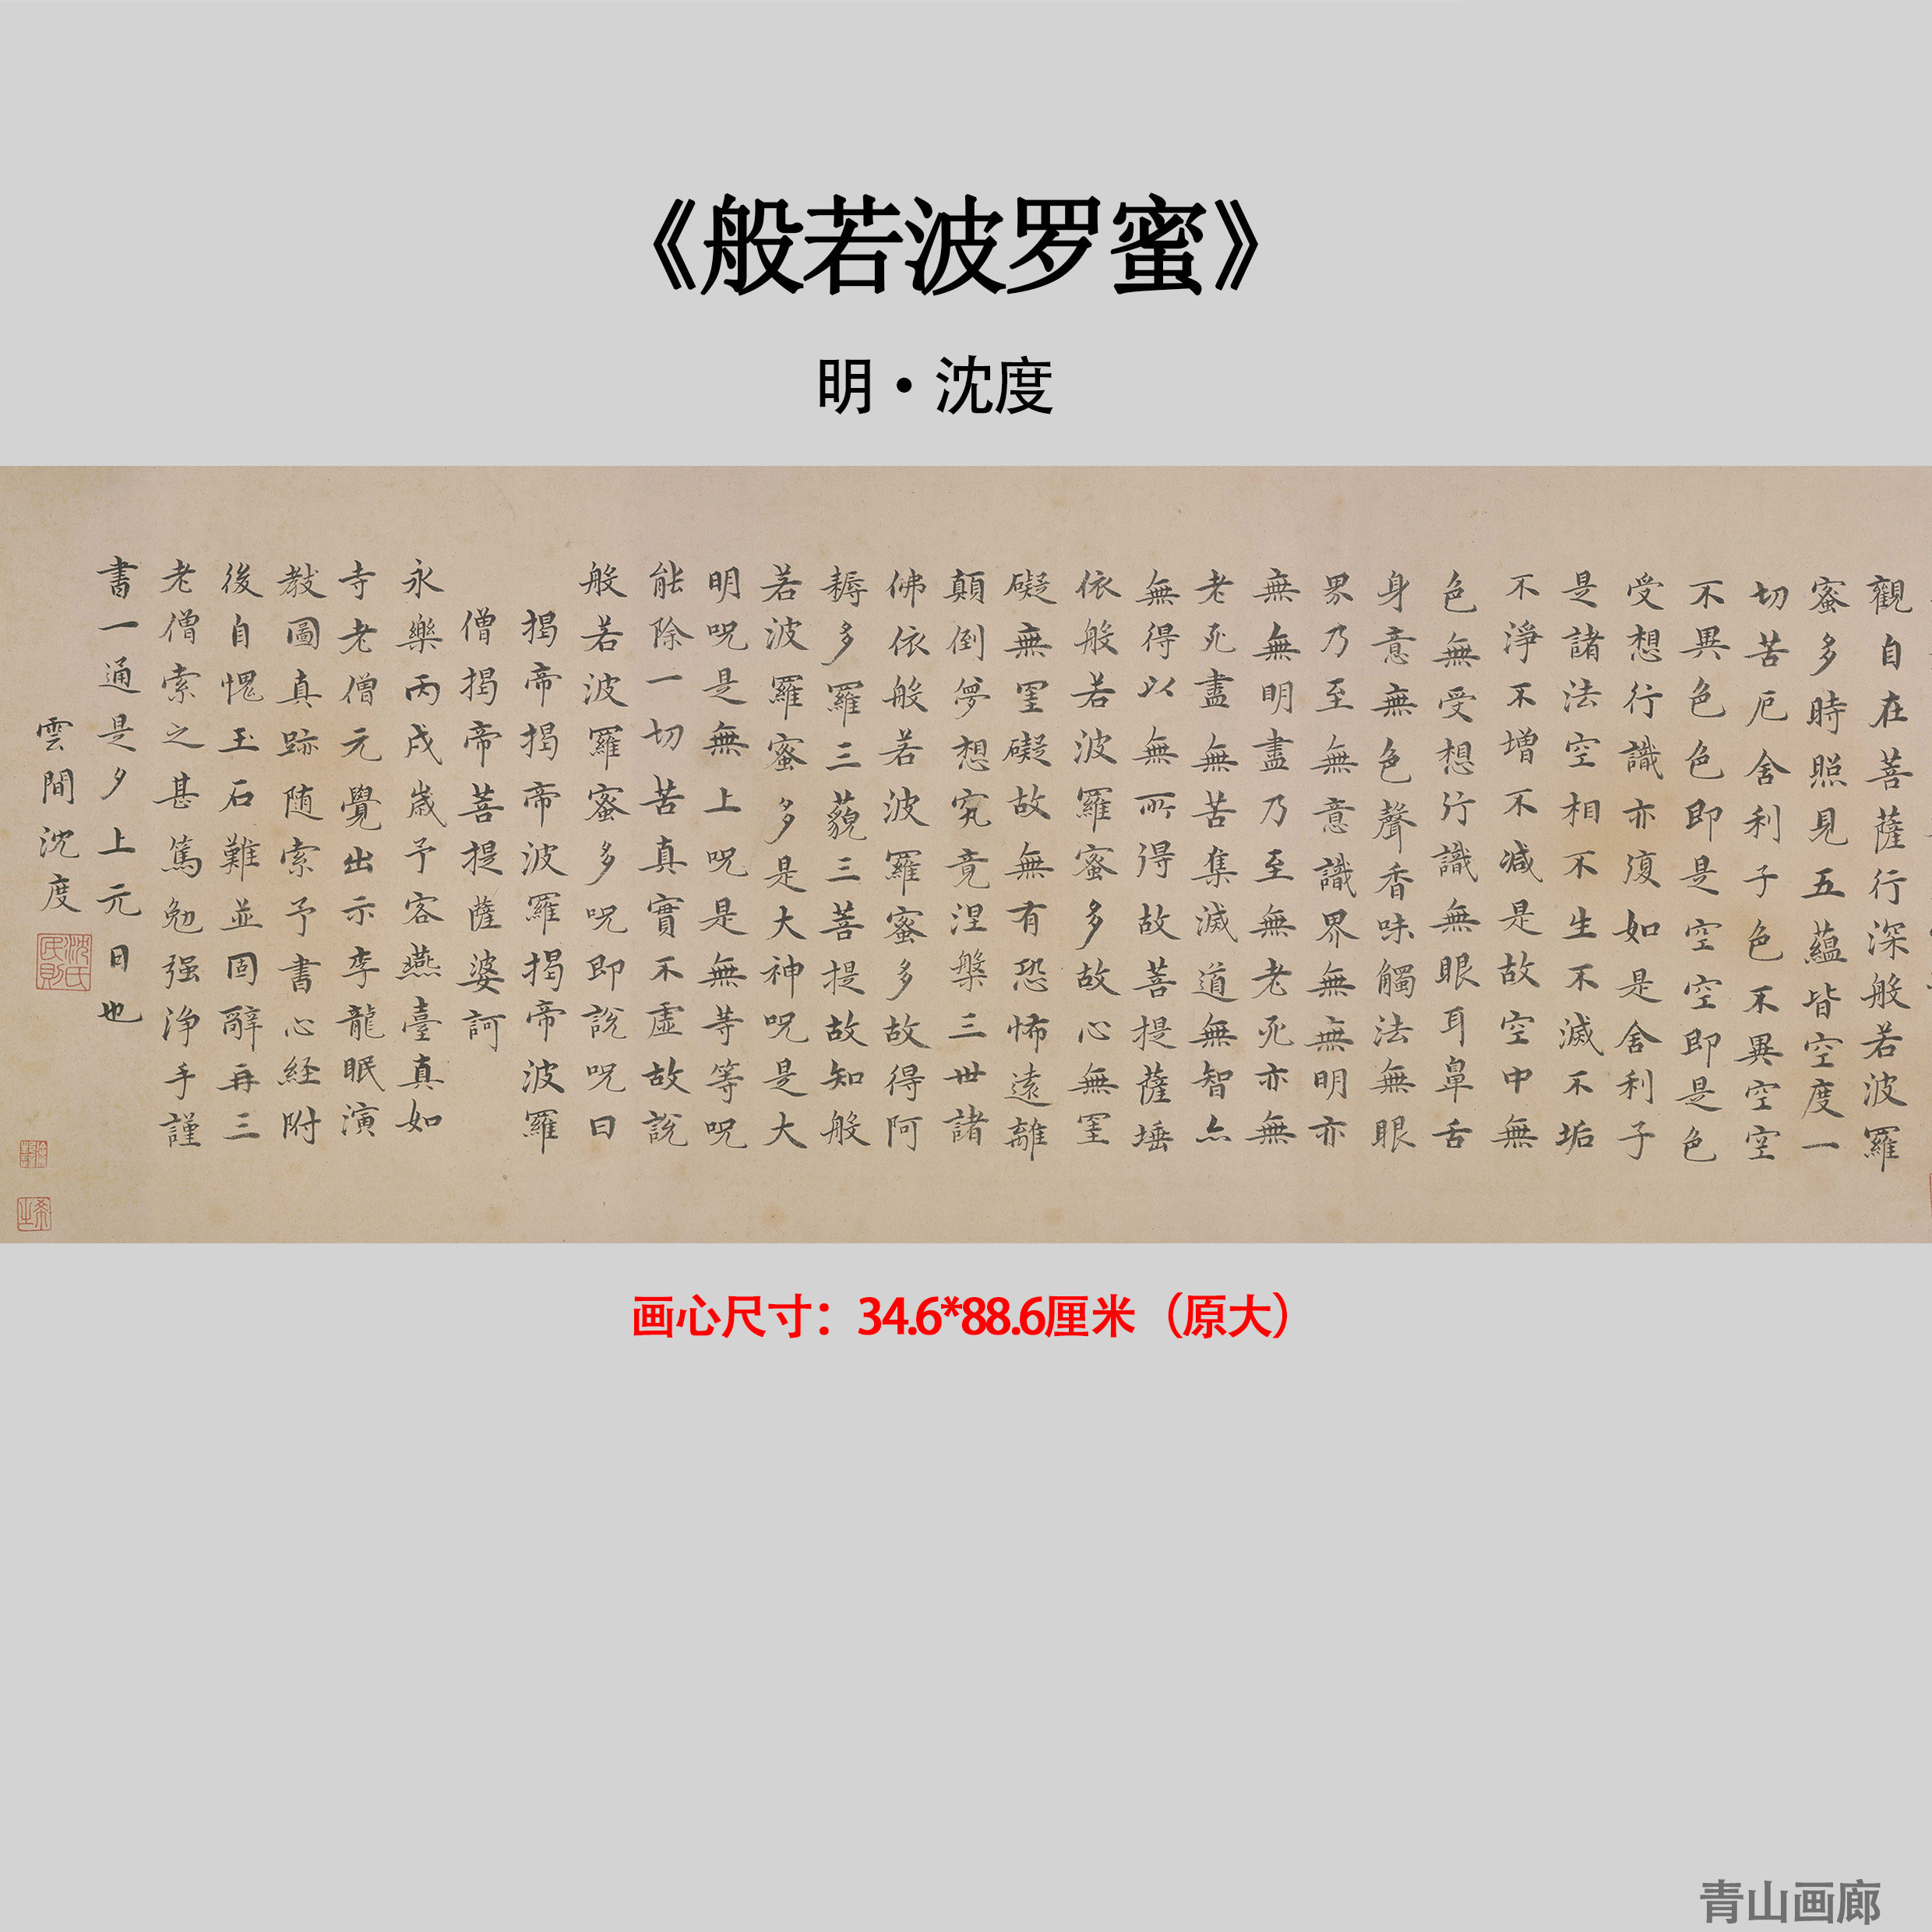 《般若波罗蜜》
明·沈度
觀自在菩薩行深般若波羅
蜜多時照見五蘊皆空度一
切苦厄舍利子色不異空空
不異色色即是空空即是色
受想行識亦復如是舍利子
是諸法空相不生不滅不垢
不淨不增不減是故空中無
色無受想行識無眼耳鼻舌
身意無色聲香味觸法無眼
界乃至無意識界無無明亦
無無明盡乃至無老死亦無
老死盡無苦集滅道無智亦
無得以無所得故菩提薩埵
依般若波羅蜜多故心無罣
礙無罣礙故無有恐怖遠離
顛倒夢想究竟涅槃三世諸
佛依般若波羅蜜多故得阿
耨多羅三藐三菩提故知般
若波羅蜜多是大神呪是大
明呪是無上呪是無等等呪
能除一切苦真實不虛故說
般若波羅蜜多呪即說呪曰
揭帝揭帝波羅揭帝波羅
僧揭帝菩提薩婆訶
永樂丙戌歲予客燕臺真如
寺老僧元覺出示李龍眠演
教圖真跡随索予書心経附
後自愧玉石難並固辭再三
老僧索之甚篤勉强淨手謹
書一通是夕上元日也
雲間沈度
沈氏民則
画心尺寸：34.6*88.6厘米（原大）
青山画廊